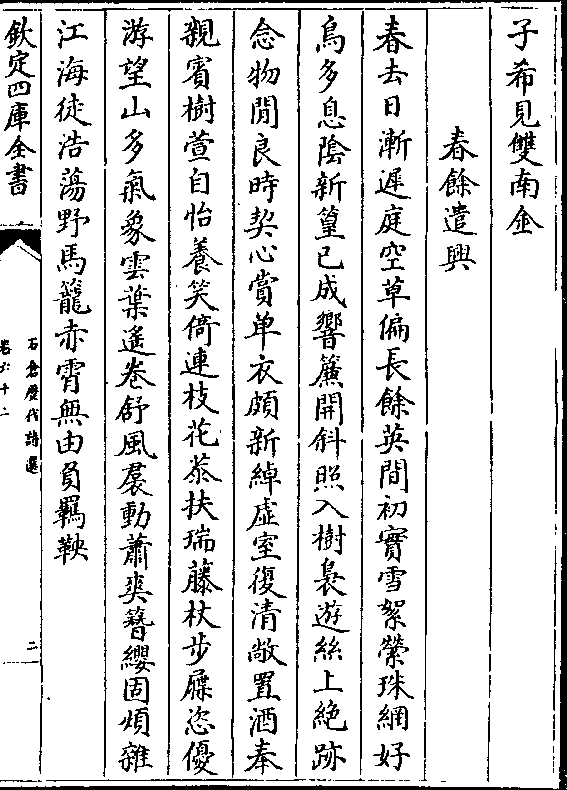 子希見雙南金
春餘遣興
春去日漸遲庭空草偏長餘英間初實雪絮縈珠網好
鳥多息陰新篁已成響簾開斜照入樹裊遊絲上絶跡
念物閒良時契心賞单衣頗新綽虛室復清敞置酒奉
親賓樹萱自怡養笑倚連枝花恭扶瑞藤杖步屧恣優
游望山多氣象雲葉遙卷舒風裾動蕭爽簪纓固煩雜
江海徒浩蕩野馬籠赤霄無由負羈鞅
欽定四庫全書
石倉歷代詩選
卷六十二
二